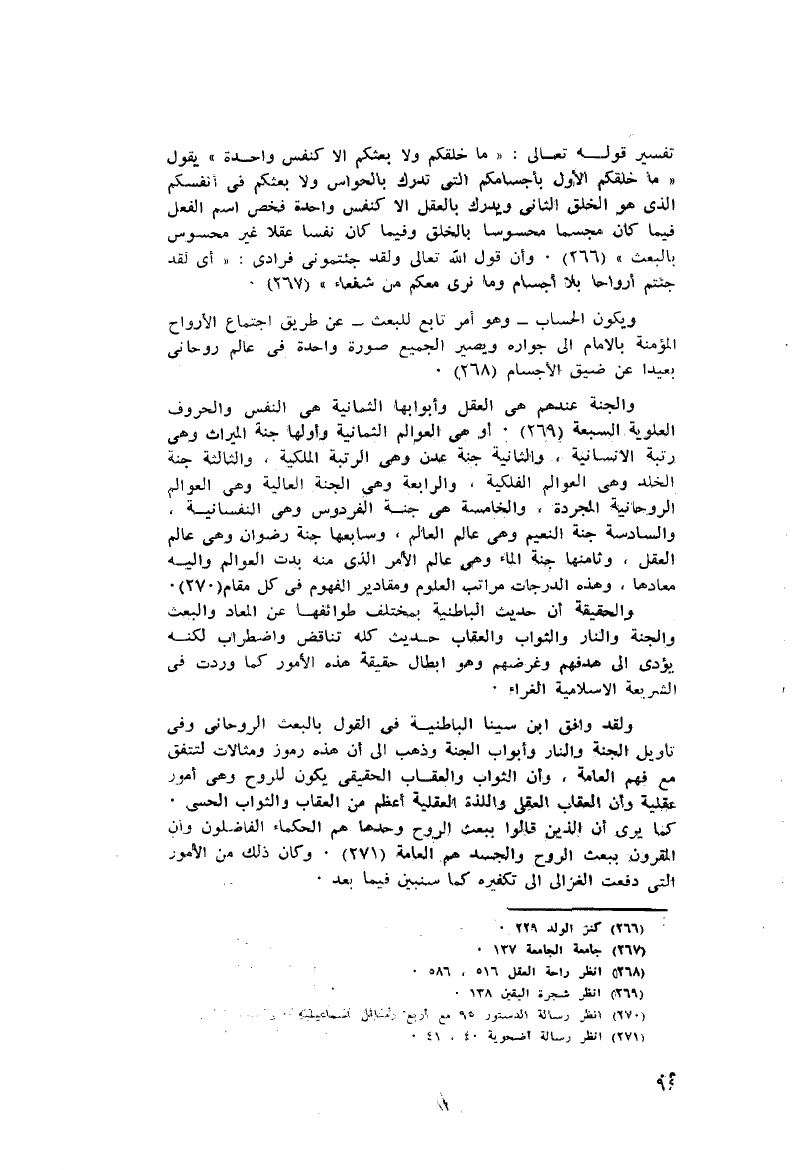 تفسير قولـــه تعــالى : « ما خلقكم ولا بعثكم الا كنفس واحــدة » يقول
« ما خلقكم الأول بأجسامكم التى تدرك بالحواس ولا بعثكم فى أنفسكم
الذى هو الخلق الثانى ويدرك بالعقل الا كنفس واحدة فخص اسم الفعل
فيما كان مجسما محسوسا بالخلق وفيما كان نفسا عقلا غير محسوس
بالبعث » (٢٦٦) ٠ وأن قول الله تعالى ولقد جئتمونى فرادى : « أى لقد
جئتم أرواحا بلا أجسام وما نرى معكم من شفعاء » (٢٦٧) ٠
ويكون الحساب ــ وهو أمر تابع للبعث ــ عن طريق اجتماع الأرواح
المؤمنة بالامام الى جواره ويصير الجميع صورة واحدة فى عالم روحانى
بعيدا عن ضيق الأجسام (٢٦٨) ٠
والجنة عندهم هى العقل وأبوابها الثمانية هى النفس والحروف
العلوية السبعة (٢٦٩) ٠ أو هى العوالم الثمانية وأولها جنة الميراث وهى
رتبة الانسانية ، والثانية جنة عدن وهى الرتبة الملكية ، والثالثة جنة
الخلد وهى العوالم الفلكية ، والرابعة وهى الجنة العالية وهى العوالم
الروحانية المجردة ، والخامسة هى جنــة الفردوس وهى النفسانيــة ،
والسادسة جنة النعيم وهى عالم العالم ، وسابعها جنة رضوان وهى عالم
العقل ، وثامنها جنة الماء وهى عالم الأمر الذى منه بدت العوالم واليــه
معادها ، وهذه الدرجات مراتب العلوم ومقادير الفهوم فى كل مقام(٢٧٠)٠
والحقيقة أن حديث الباطنية بمختلف طوائفهــا عن المعاد والبعث
والجنة والنار والثواب والعقاب حــديث كله تناقض واضطراب لكنــه
يؤدى الى هدفهم وغرضهم وهو ابطال حقيقة هذه الأمور كما وردت فى
الشريعة الاسلامية الغراء ٠
ولقد وافق ابن سينا الباطنيــة فى القول بالبعث الروحانى وفى
تاويل الجنة والنار وأبواب الجنة وذهب الى أن هذه رموز ومثالات لتتفق
مع فهم العامة ، وأن الثواب والعقــاب الحقيقى يكون للروح وهى أمور
عقلية وأن العقاب العقلى واللذة العقلية أعظم من العقاب والثواب الحسى ٠
كما يرى أن الذين قالوا ببعث الروح وحدها هم الحكماء الفاضلون وان
المقرون ببعث الروح والجسد هم العامة (٢٧١) ٠ وكان ذلك من الأمور
التى دفعت الغزالى الى تكفيره كما سنبين فيما بعد ٠
(٢٦٦) كنز الولد ٢٢٩ ٠
(٢٦٧) جامعة الجامعة ١٣٧ ٠
(٢٦٨) انظر راحة العقل ٥١٦ ، ٥٨٦ ٠
(٢٦٩) انظر شجرة اليقين ١٣٨ ٠
(٢٧٠) انظر رسالة الدستور ٩٥ مع أربع رسائل اسماعيلية
(٢٧١) انظر رسالة أضحوية ٤٠ ، ٤١ ٠